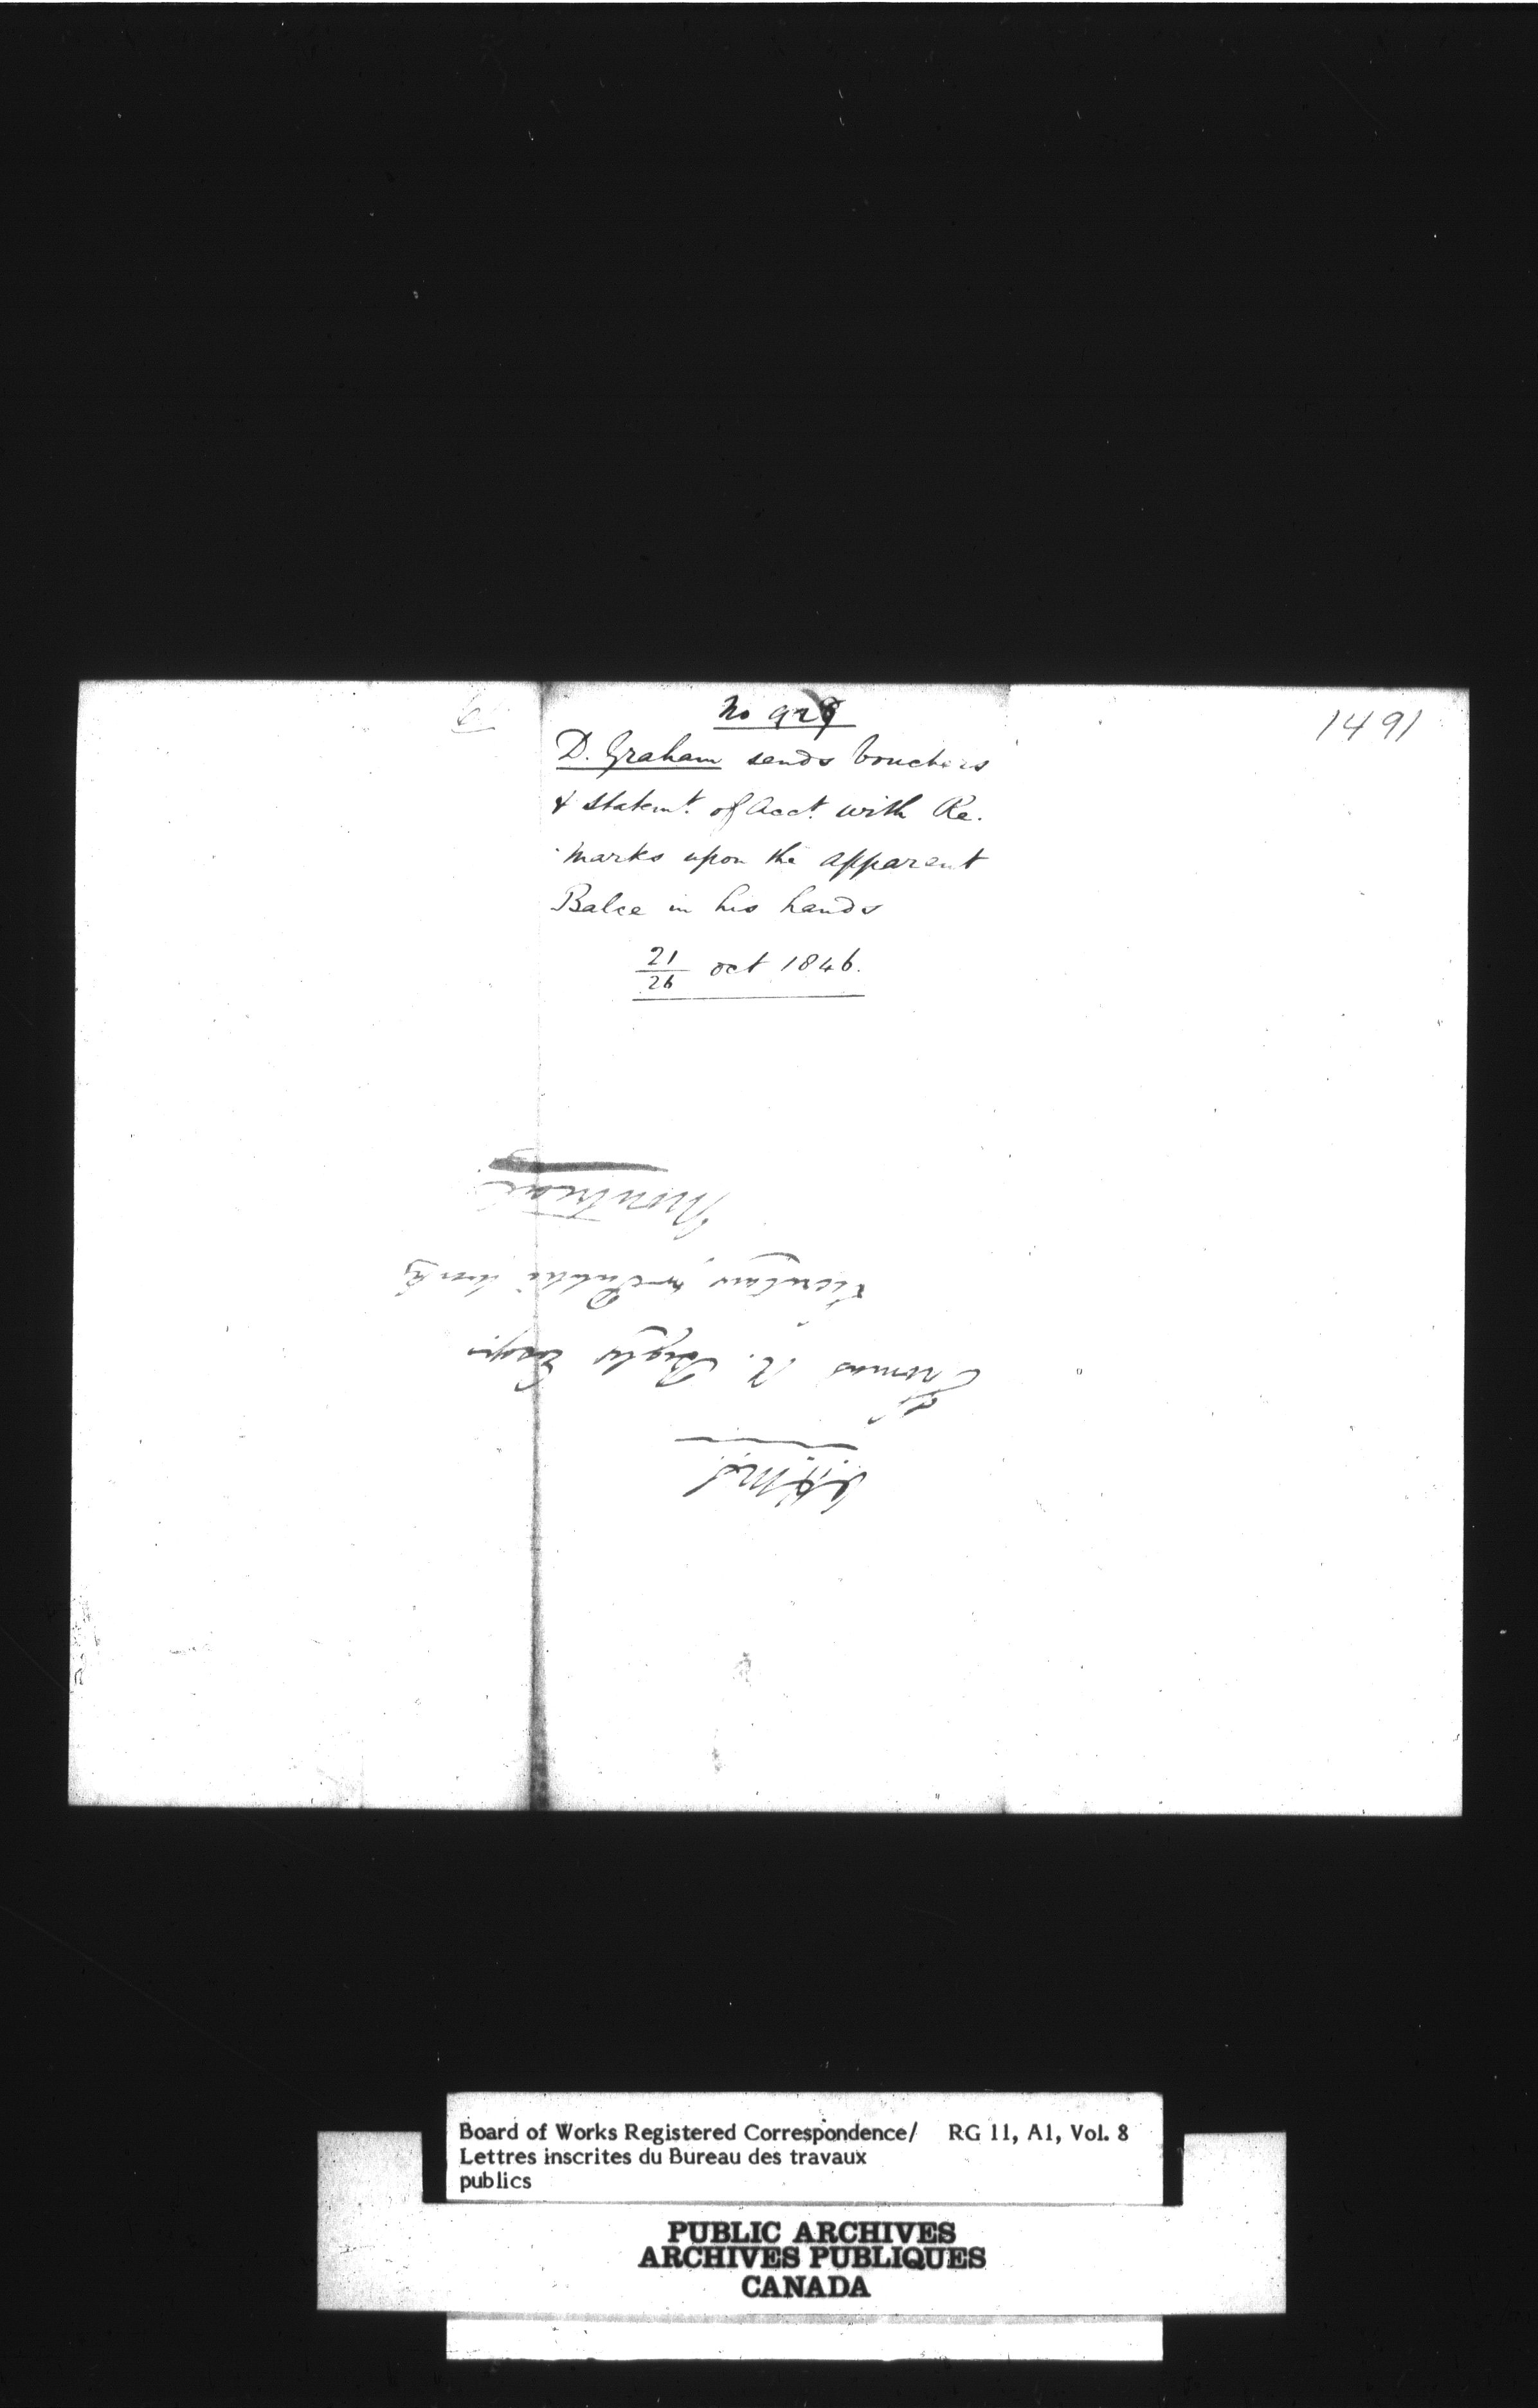 1491
No 929
D. Graham sends Vouchers
& Statemt. of Acct. with Re.
marks upon the apparent
Balce in his hands
21/26 oct 1846.
O.H.M.S.
To
Thomas A. Begly Esqr.
Secretary Public Works
Montreal
Board of Works Registered Correspondence/ RG 11, A1, Vol. 8
Lettres inscrites du Bureau des travaux
publics
PUBLIC ARCHIVES
ARCHIVES PUBLIQUES
CANADA